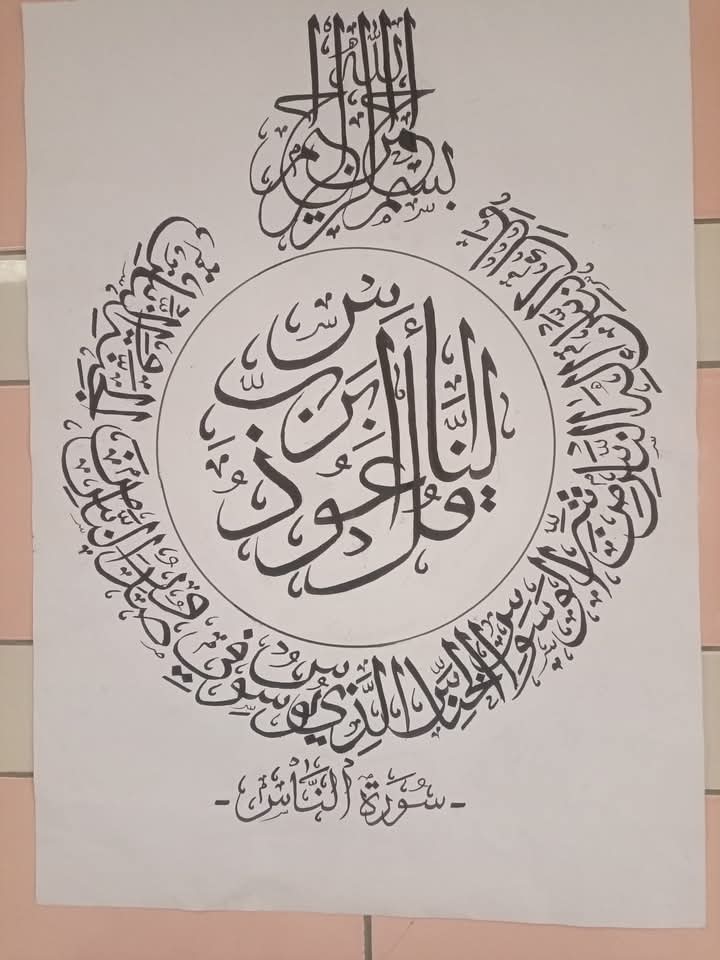 بسم الله الرحمن الرحيم
قُلْ أَعُوذُ بِرَبِّ النَّاسِ
مَلِكِ النَّاسِ إِلَٰهِ النَّاسِ مِن شَرِّ الْوَسْوَاسِ الْخَنَّاسِ الَّذِي يُوَسْوِسُ فِي صُدُورِ النَّاسِ مِنَ الْجِنَّةِ وَالنَّاسِ
- سُورَة النَّاسْ -